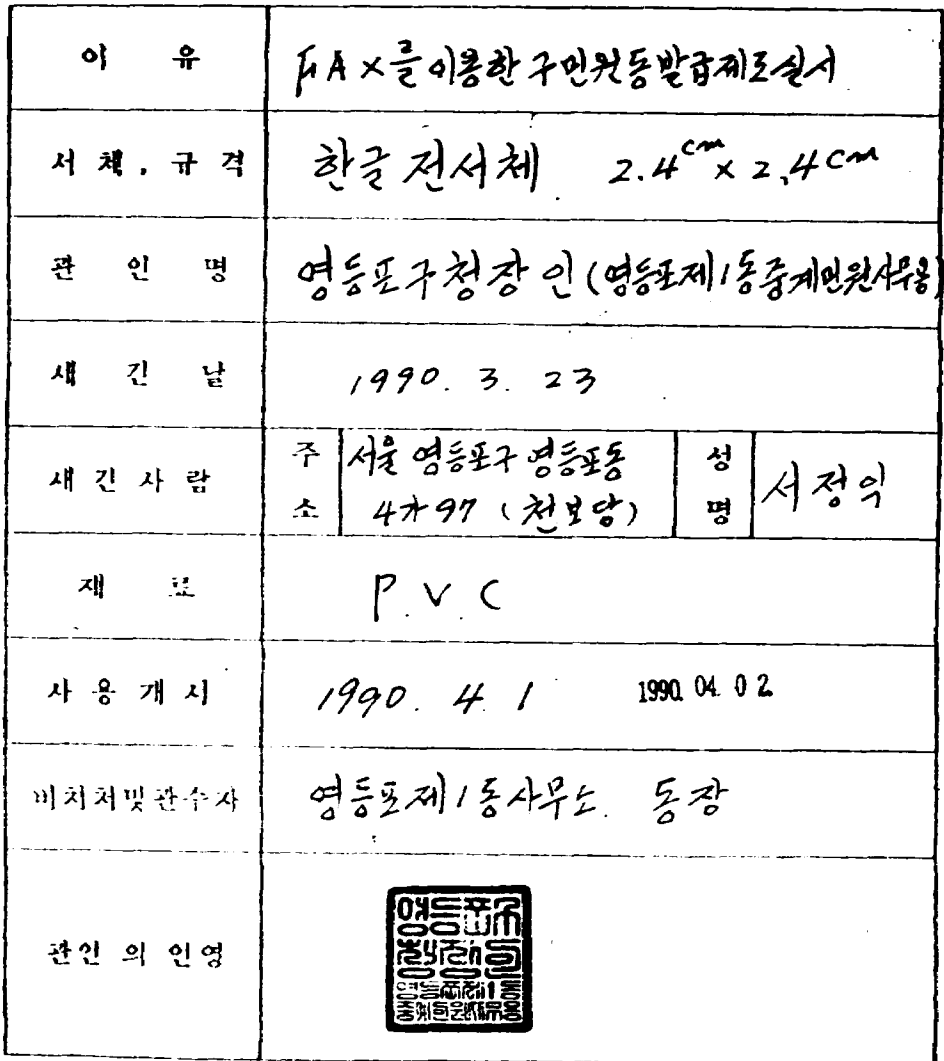 이 유 FAX를 이용한 구민원동발급제도실시
서체, 규격 한글 전서체 2.4cm x 2.4cm
관 인 명 영등포구청장 인 (영등포제1동중계민원사무용)
새 긴 날 1990. 3. 23
새 긴 사 람 주소 서울 영등포구 영등포동
4가 97 (천보당) 성명 서정익
재 료 P.V.C
사 용 개 시 1990. 4. 1 1990. 04. 02
비치처및관수자 영등포제1동사무소. 동장
관인 의 인영
영등포구
청장인
영등포제1동
중계민원사무용